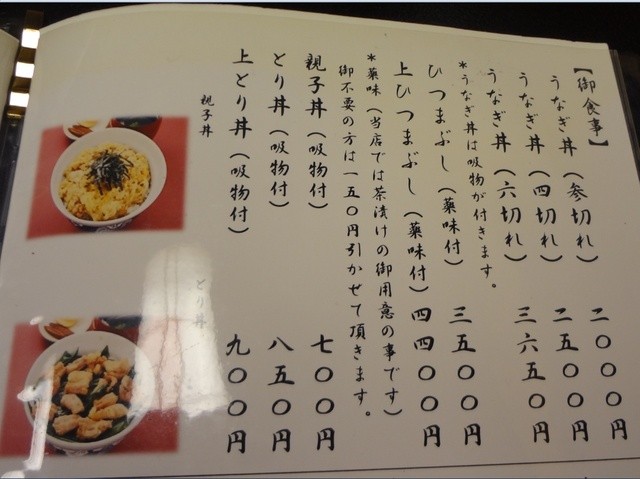 【御食事】
うなぎ丼（参切れ） 二〇〇〇円
うなぎ丼（四切れ） 二五〇〇円
うなぎ丼（六切れ） 三六五〇円
*うなぎ丼は吸物が付きます。
ひつまぶし（薬味付） 三五〇〇円
上ひつまぶし（薬味付） 四四〇〇円
*薬味（当店では茶漬けの御用意の事です）
御不要の方は一五〇円引かせて頂きます。
親子丼（吸物付） 七〇〇円
とり丼（吸物付） 八五〇円
上とり丼（吸物付） 九〇〇円
親子丼
とり丼